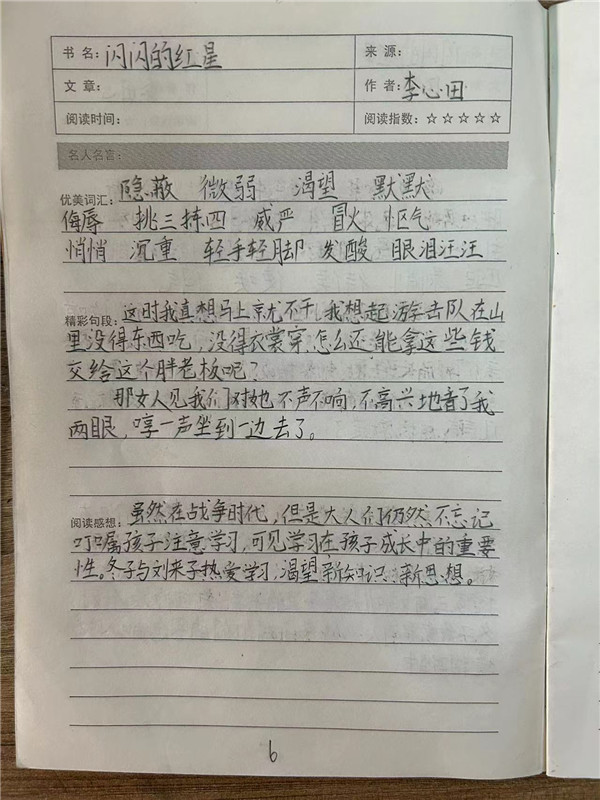 书 名：闪闪的红星 来 源：
文 章： 作 者：李心田
阅读时间： 阅读指数：☆☆☆☆☆
名人名言：
优美词汇：隐蔽 微弱 渴望 默默
侮辱 挑三拣四 威严 冒火 怄气
悄悄 沉重 轻手轻脚 发酸 眼泪汪汪
精彩句段：这时我真想马上就不干，我想起游击队在山
里没得东西吃，没得衣裳穿，怎么还能拿这些钱
交给这个胖老板呢？
那女人见我们对她不声不响，不高兴地看了我
两眼，哼一声坐到一边去了。
阅读感想：虽然在战争时代，但是大人们仍然不忘记
叮嘱孩子注意学习，可见学习在孩子成长中的重要
性。冬子与刘来子热爱学习，渴望新知识、新思想。
6